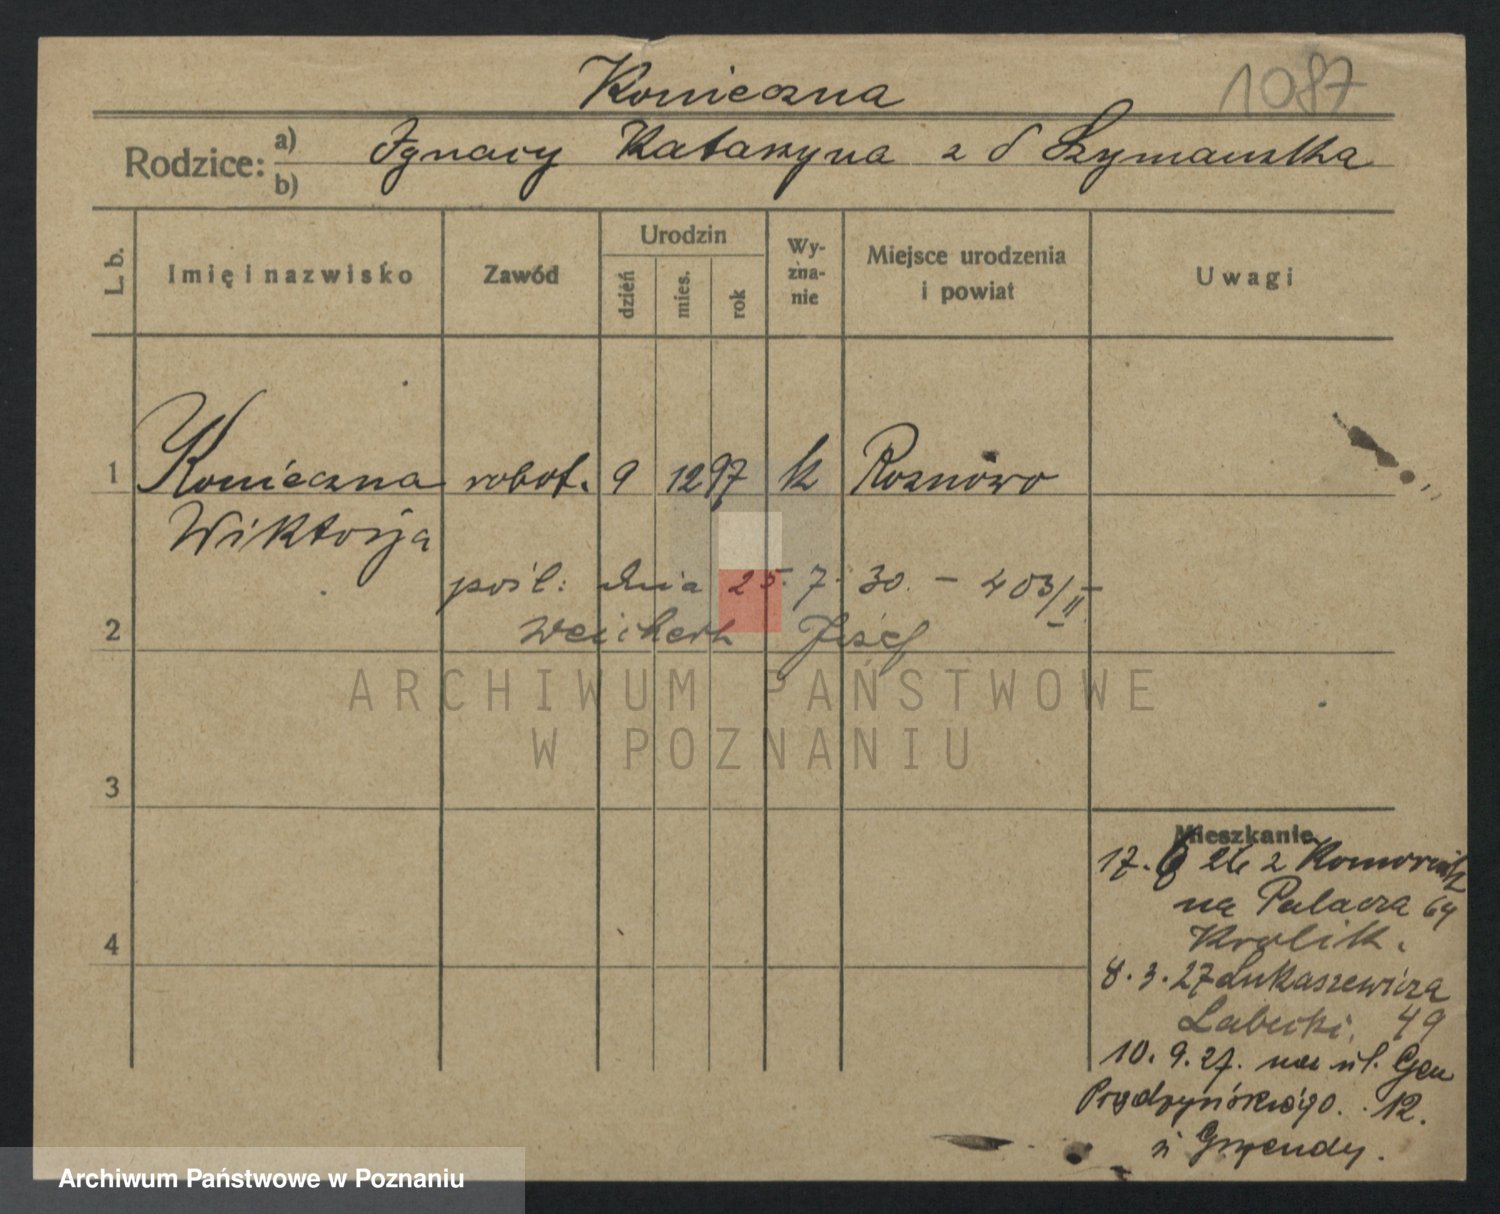 Konieczna
1087
Rodzice: a) Ignacy Katarzyna z d Szymańska
b)
L. b.
Imię i nazwisko
Zawód
Urodzin
dzień
mies.
rok
Wy-
zna-
nie
Miejsce urodzenia
i powiat
Uwagi
1 Konieczna robot. 9 12 97 k Rosnowo
Wiktorja
pośl: dnia 25. 7. 30. – 403/II
2 Weichert Józef
ARCHIWUM PAŃSTWOWE
W POZNANIU
3
Mieszkanie
17. 26 z
na Palacza 64
4 Krolik.
8. 3. 27 Łukaszewicza
Labucki. 49
10. 9. 27. na ul. Gen
Prądzyńskiego. 12.
Archiwum Państwowe w Poznaniu